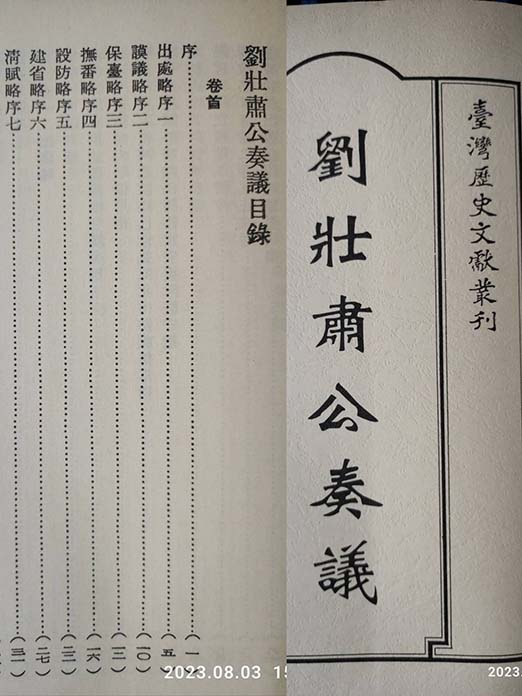 臺灣歷史文獻叢刊
劉壯肅公奏議
劉壯肅公奏議目錄
卷首
序……(一)
出處略序一……(五)
謨議略序二……(一〇)
保臺略序三……
撫番略序四……(一六)
設防略序五……
建省略序六……(二七)
清賦略序七……
2023.08.03 15
2023.